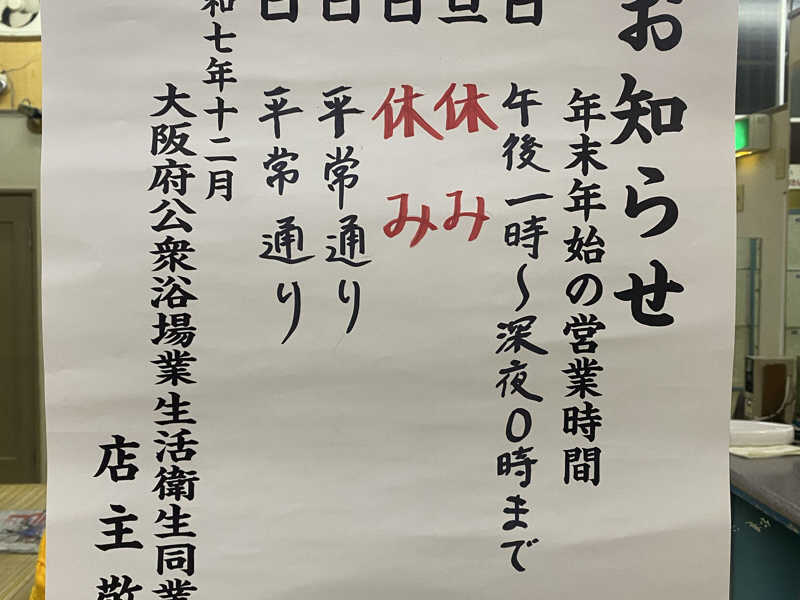 お知らせ
年末年始の営業時間
日 午後一時〜深夜0時まで
旦 休み
日 休み
日 平常通り
日 平常通り
和七年十二月
大阪府公衆浴場業生活衛生同業
店主敬